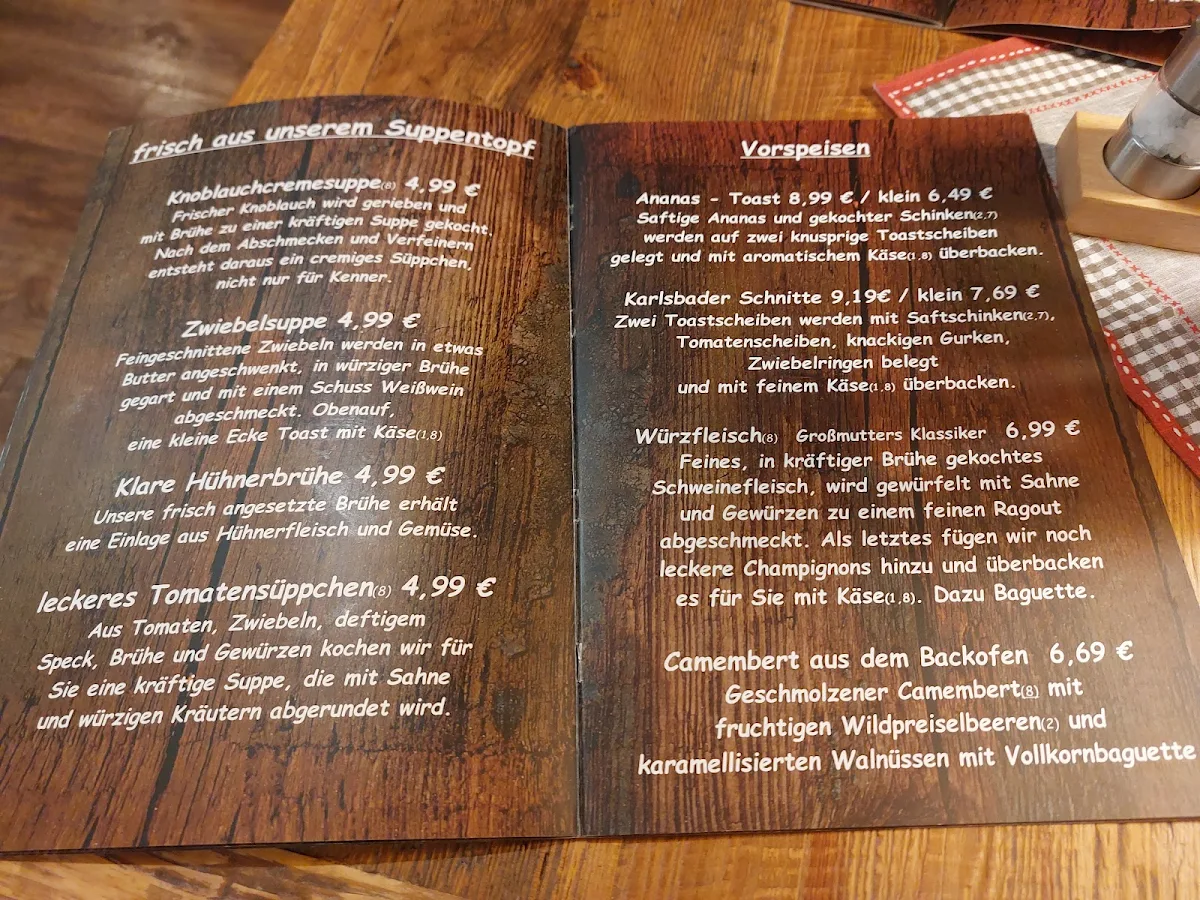 frisch aus unserem Suppentopf
Knoblauchcremesuppe(8) 4,99 €
Frischer Knoblauch wird gerieben und
mit Brühe zu einer kräftigen Suppe gekocht.
Nach dem Abschmecken und Verfeinern
entsteht daraus ein cremiges Süppchen,
nicht nur für Kenner.
Zwiebelsuppe 4,99 €
Feingeschnittene Zwiebeln werden in etwas
Butter angeschwenkt, in würziger Brühe
gegart und mit einem Schuss Weißwein
abgeschmeckt. Obenauf,
eine kleine Ecke Toast mit Käse(1,8)
Klare Hühnerbrühe 4,99 €
Unsere frisch angesetzte Brühe erhält
eine Einlage aus Hühnerfleisch und Gemüse.
leckeres Tomatensüppchen(8) 4,99 €
Aus Tomaten, Zwiebeln, deftigem
Speck, Brühe und Gewürzen kochen wir für
Sie eine kräftige Suppe, die mit Sahne
und würzigen Kräutern abgerundet wird.
Vorspeisen
Ananas - Toast 8,99 € / klein 6,49 €
Saftige Ananas und gekochter Schinken(2,7)
werden auf zwei knusprige Toastscheiben
gelegt und mit aromatischem Käse(1,8) überbacken.
Karlsbader Schnitte 9,19€ / klein 7,69 €
Zwei Toastscheiben werden mit Saftschinken(2,7),
Tomatenscheiben, knackigen Gurken,
Zwiebelringen belegt
und mit feinem Käse(1,8) überbacken.
Würzfleisch(8) Großmutters Klassiker 6,99 €
Feines, in kräftiger Brühe gekochtes
Schweinefleisch, wird gewürfelt mit Sahne
und Gewürzen zu einem feinen Ragout
abgeschmeckt. Als letztes fügen wir noch
leckere Champignons hinzu und überbacken
es für Sie mit Käse(1,8). Dazu Baguette.
Camembert aus dem Backofen 6,69 €
Geschmolzener Camembert(8) mit
fruchtigen Wildpreiselbeeren(2) und
karamellisierten Walnüssen mit Vollkornbaguette